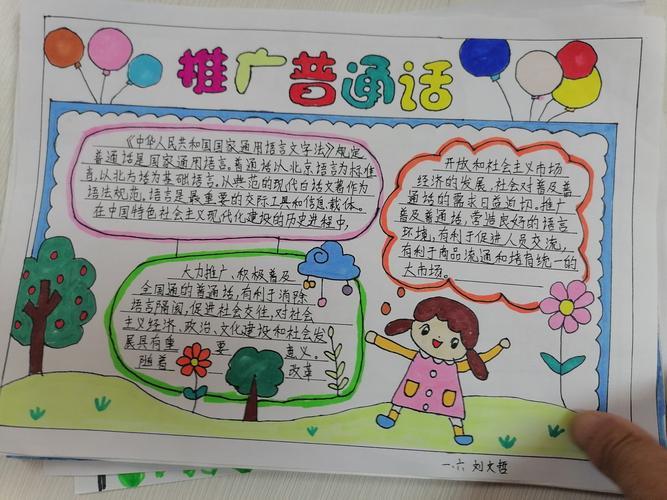 推广普通话
《中华人民共和国国家通用语言文字法》规定
普通话是国家通用语言。普通话以北京语言为标准
音,以北方话为基础语言,以典范的现代白话文著作为
语法规范,语言是最重要的交际工具和信息载体。
在中国特色社会主义现代化建设的历史进程中,
开放和社会主义市场
经济的发展,社会对普及普
通话的需求日益迫切。推广
普及普通话,营造良好的语言
环境,有利于促进人员交流,
有利于商品流通和培育统一的
大市场。
大力推广、积极普及
全国通的普通话,有利于消除
语言隔阂,促进社会交往,对社会
主义经济、政治、文化建设和社会发
展具有重 要 意义。
随着 改革
一.六 刘文哲